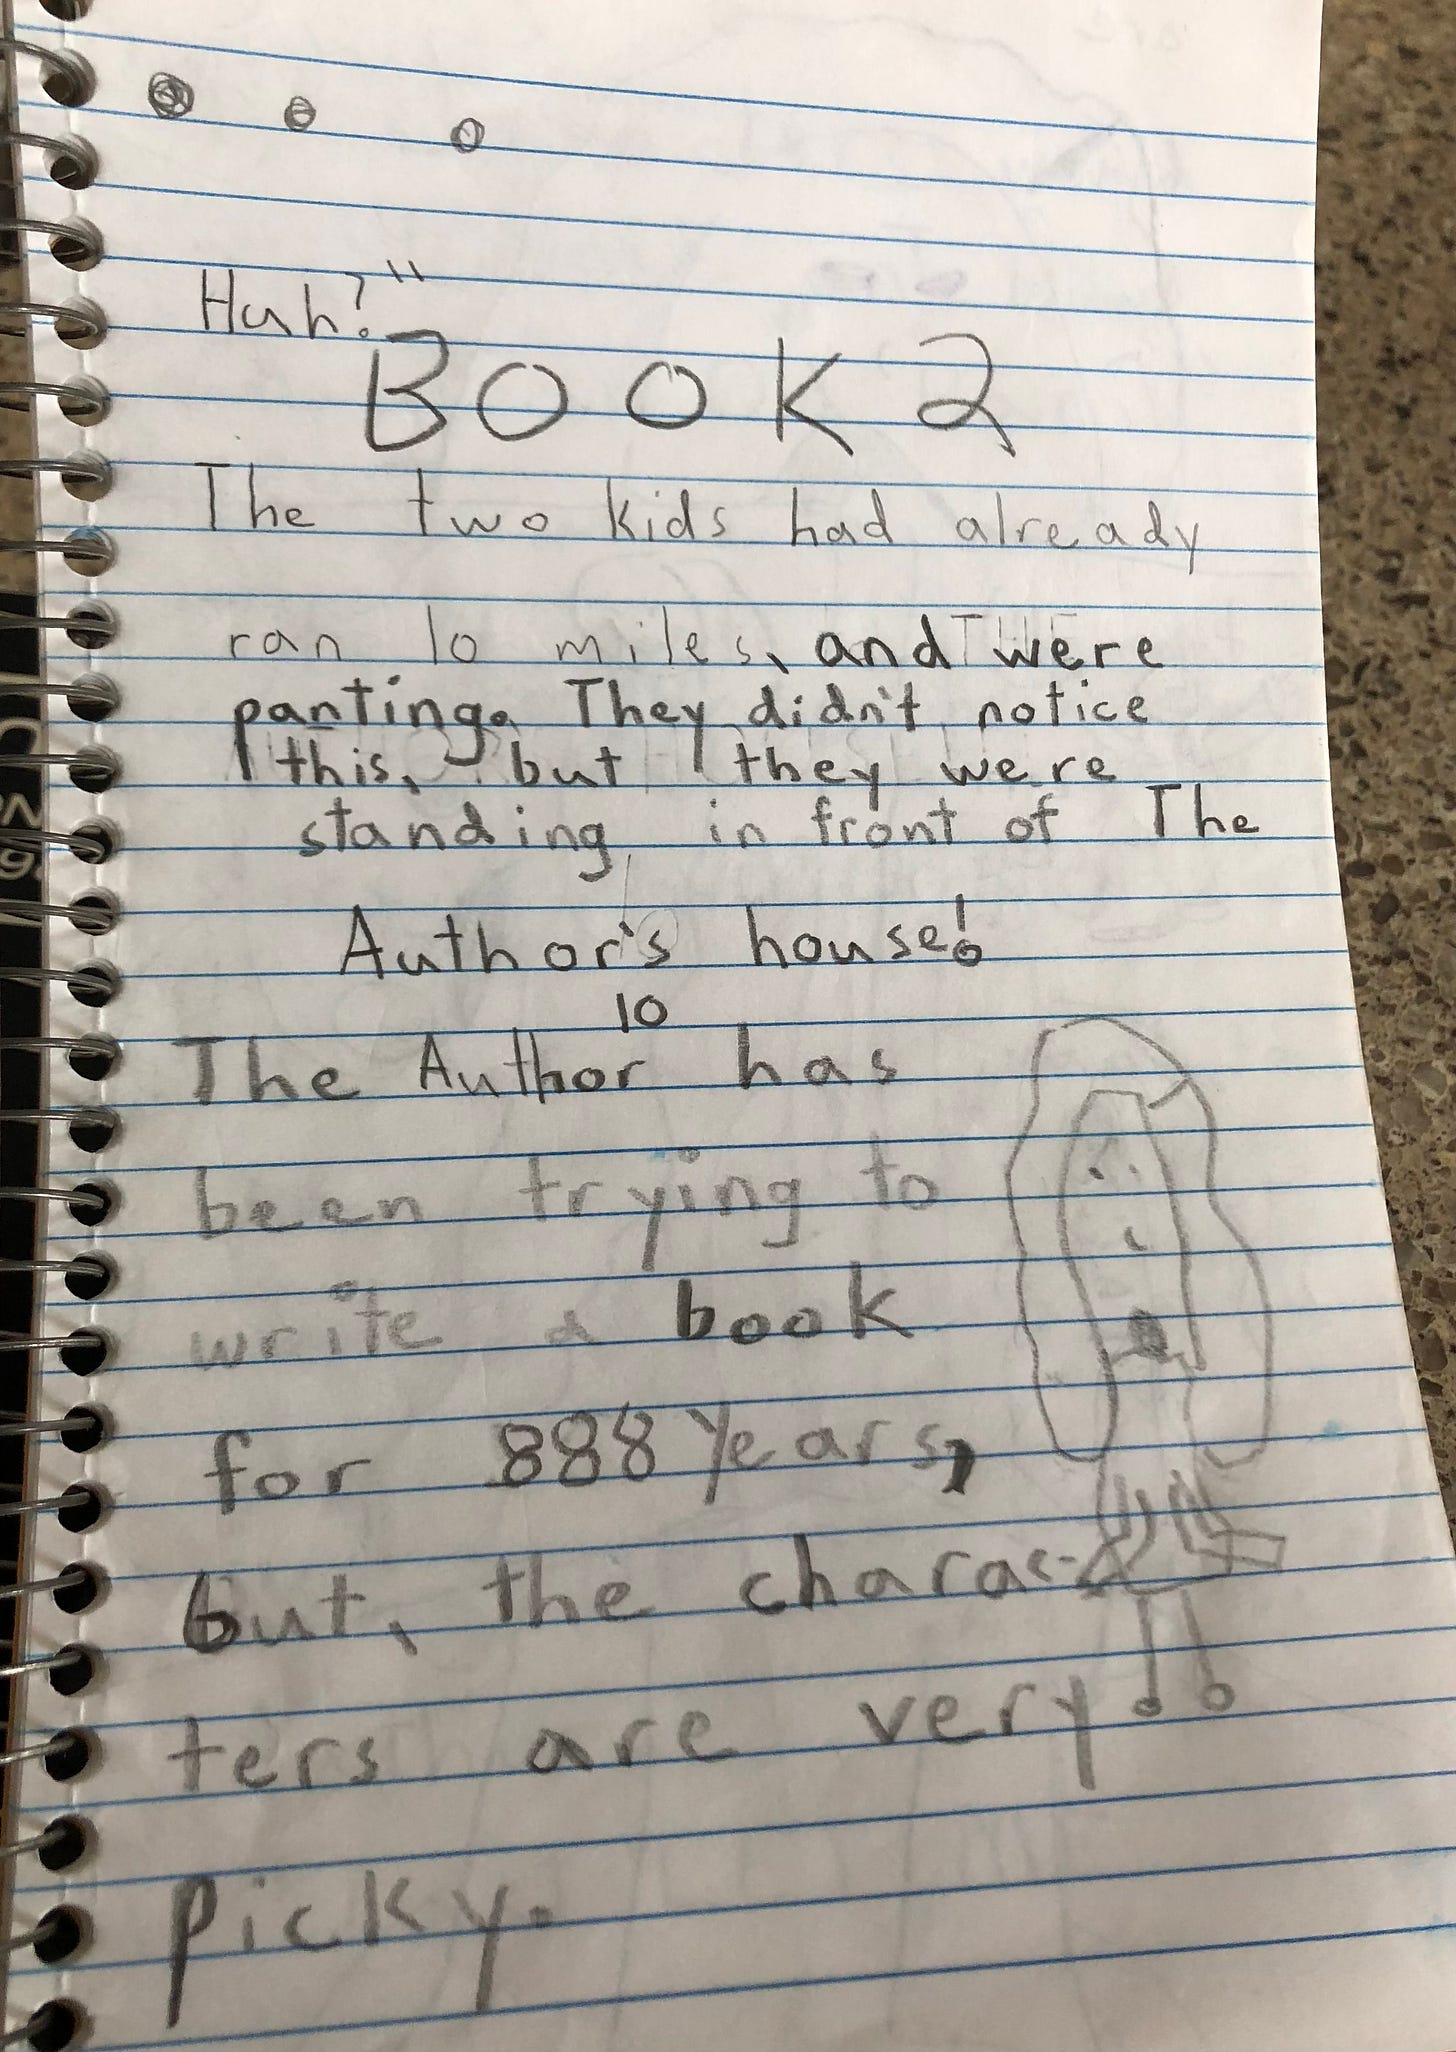 • • •
Huh?"
BOOK 2
The two kids had already
ran 10 miles, and were
panting. They didn't notice
this, but they were
standing in front of The
Author's house!
10
The Author has
been trying to
write a book
for 888 years,
but, the charac-
ters are very
picky.